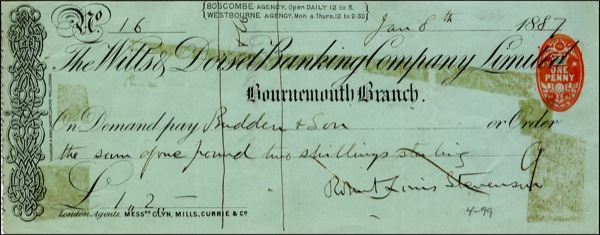 BOSCOMBE AGENCY, Open DAILY 12 to 3.
WESTBOURNE AGENCY, Mon & Thurs. 12 to 2-30
No 16
Jan 8th 1887
The Wilts & Dorset Banking Company Limited
ONE PENNY
Bournemouth Branch.
On Demand pay Budden & Son or Order
the sum of one pound two shillings sterling
Robert Louis Stevenson
£ 1. 2. —
4-99
London Agents, MESSRS GLYN, MILLS, CURRIE & Co